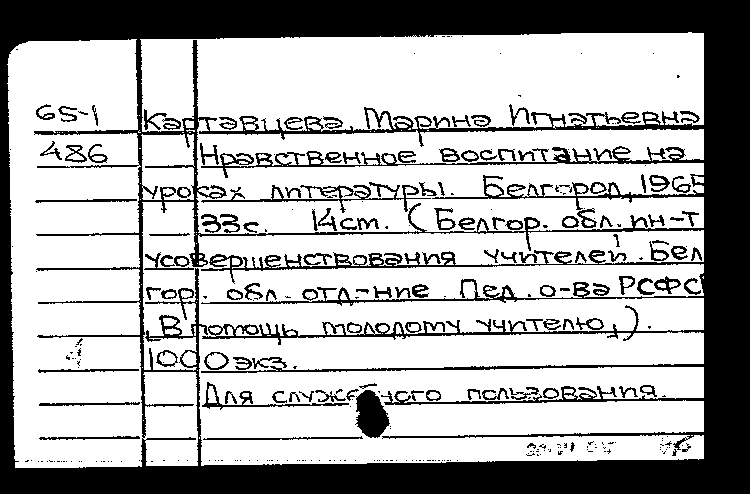 65-1 Картавцева, Марина Игнатьевна
486 Нравственное воспитание на
уроках литературы. Белгород, 1965
33с. 14см. (Белгор. обл. ин-т
усовершенствования учителей. Бел
гор. обл. отд-ние Пед. о-ва РСФСР
"В помощь молодому учителю").
1000 экз.
Для служебного пользования.